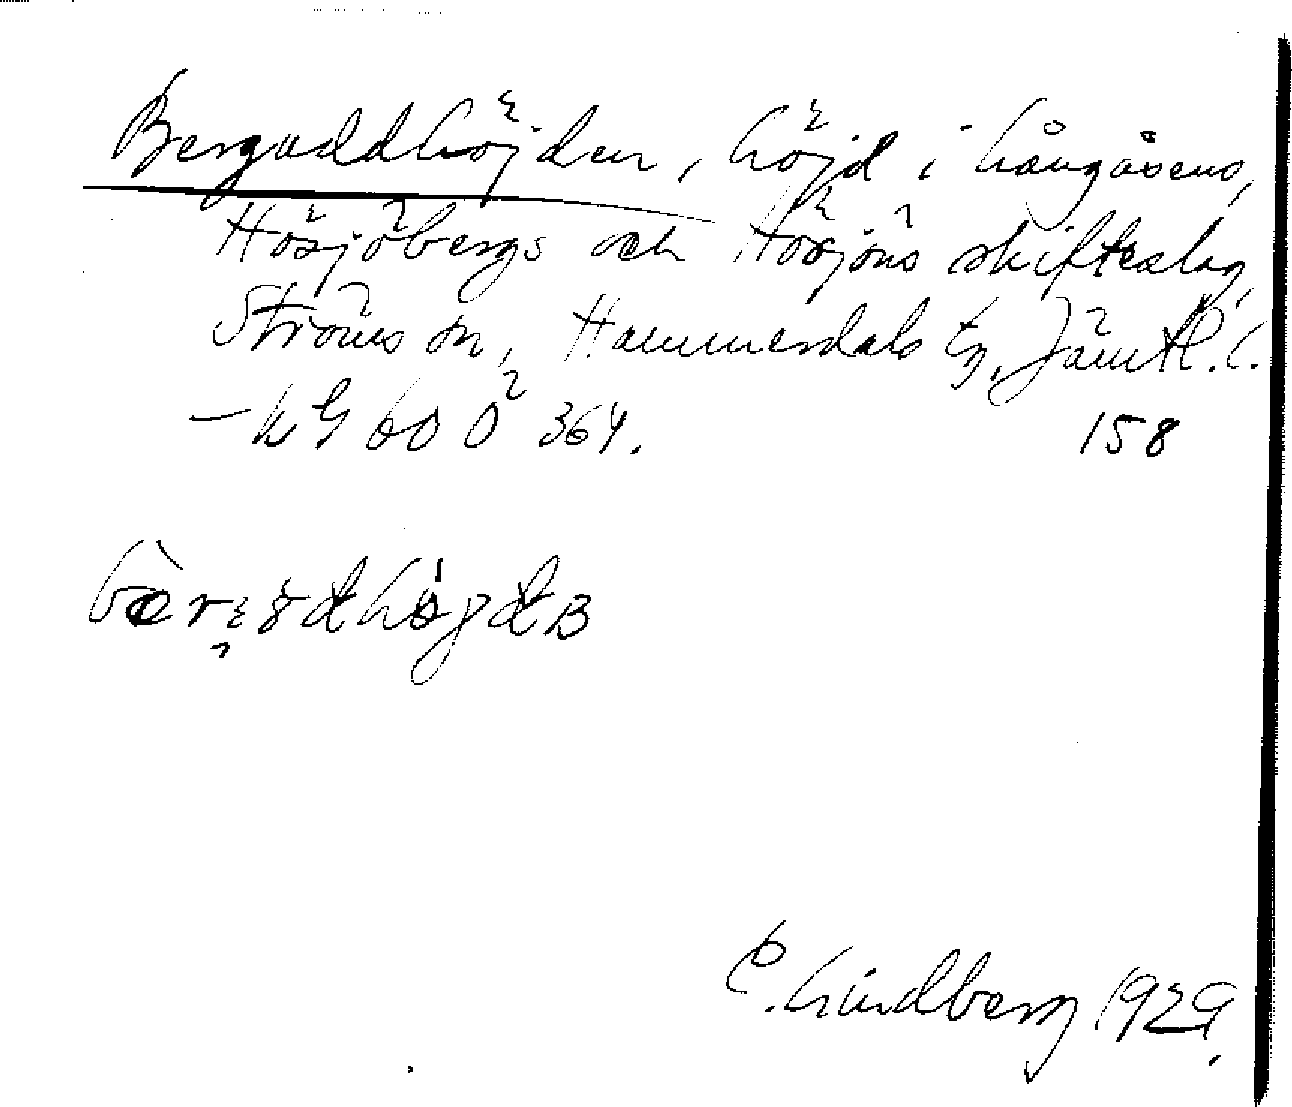 Bergaddhöjden, höjd i Långåsens,
Hösjöbergs och Hösjöns skifteslag,
Ströms sn, Hammerdals tg, Jämtl. l.
— k G 60 Ö 364. 158
C. Lindberg 1929.